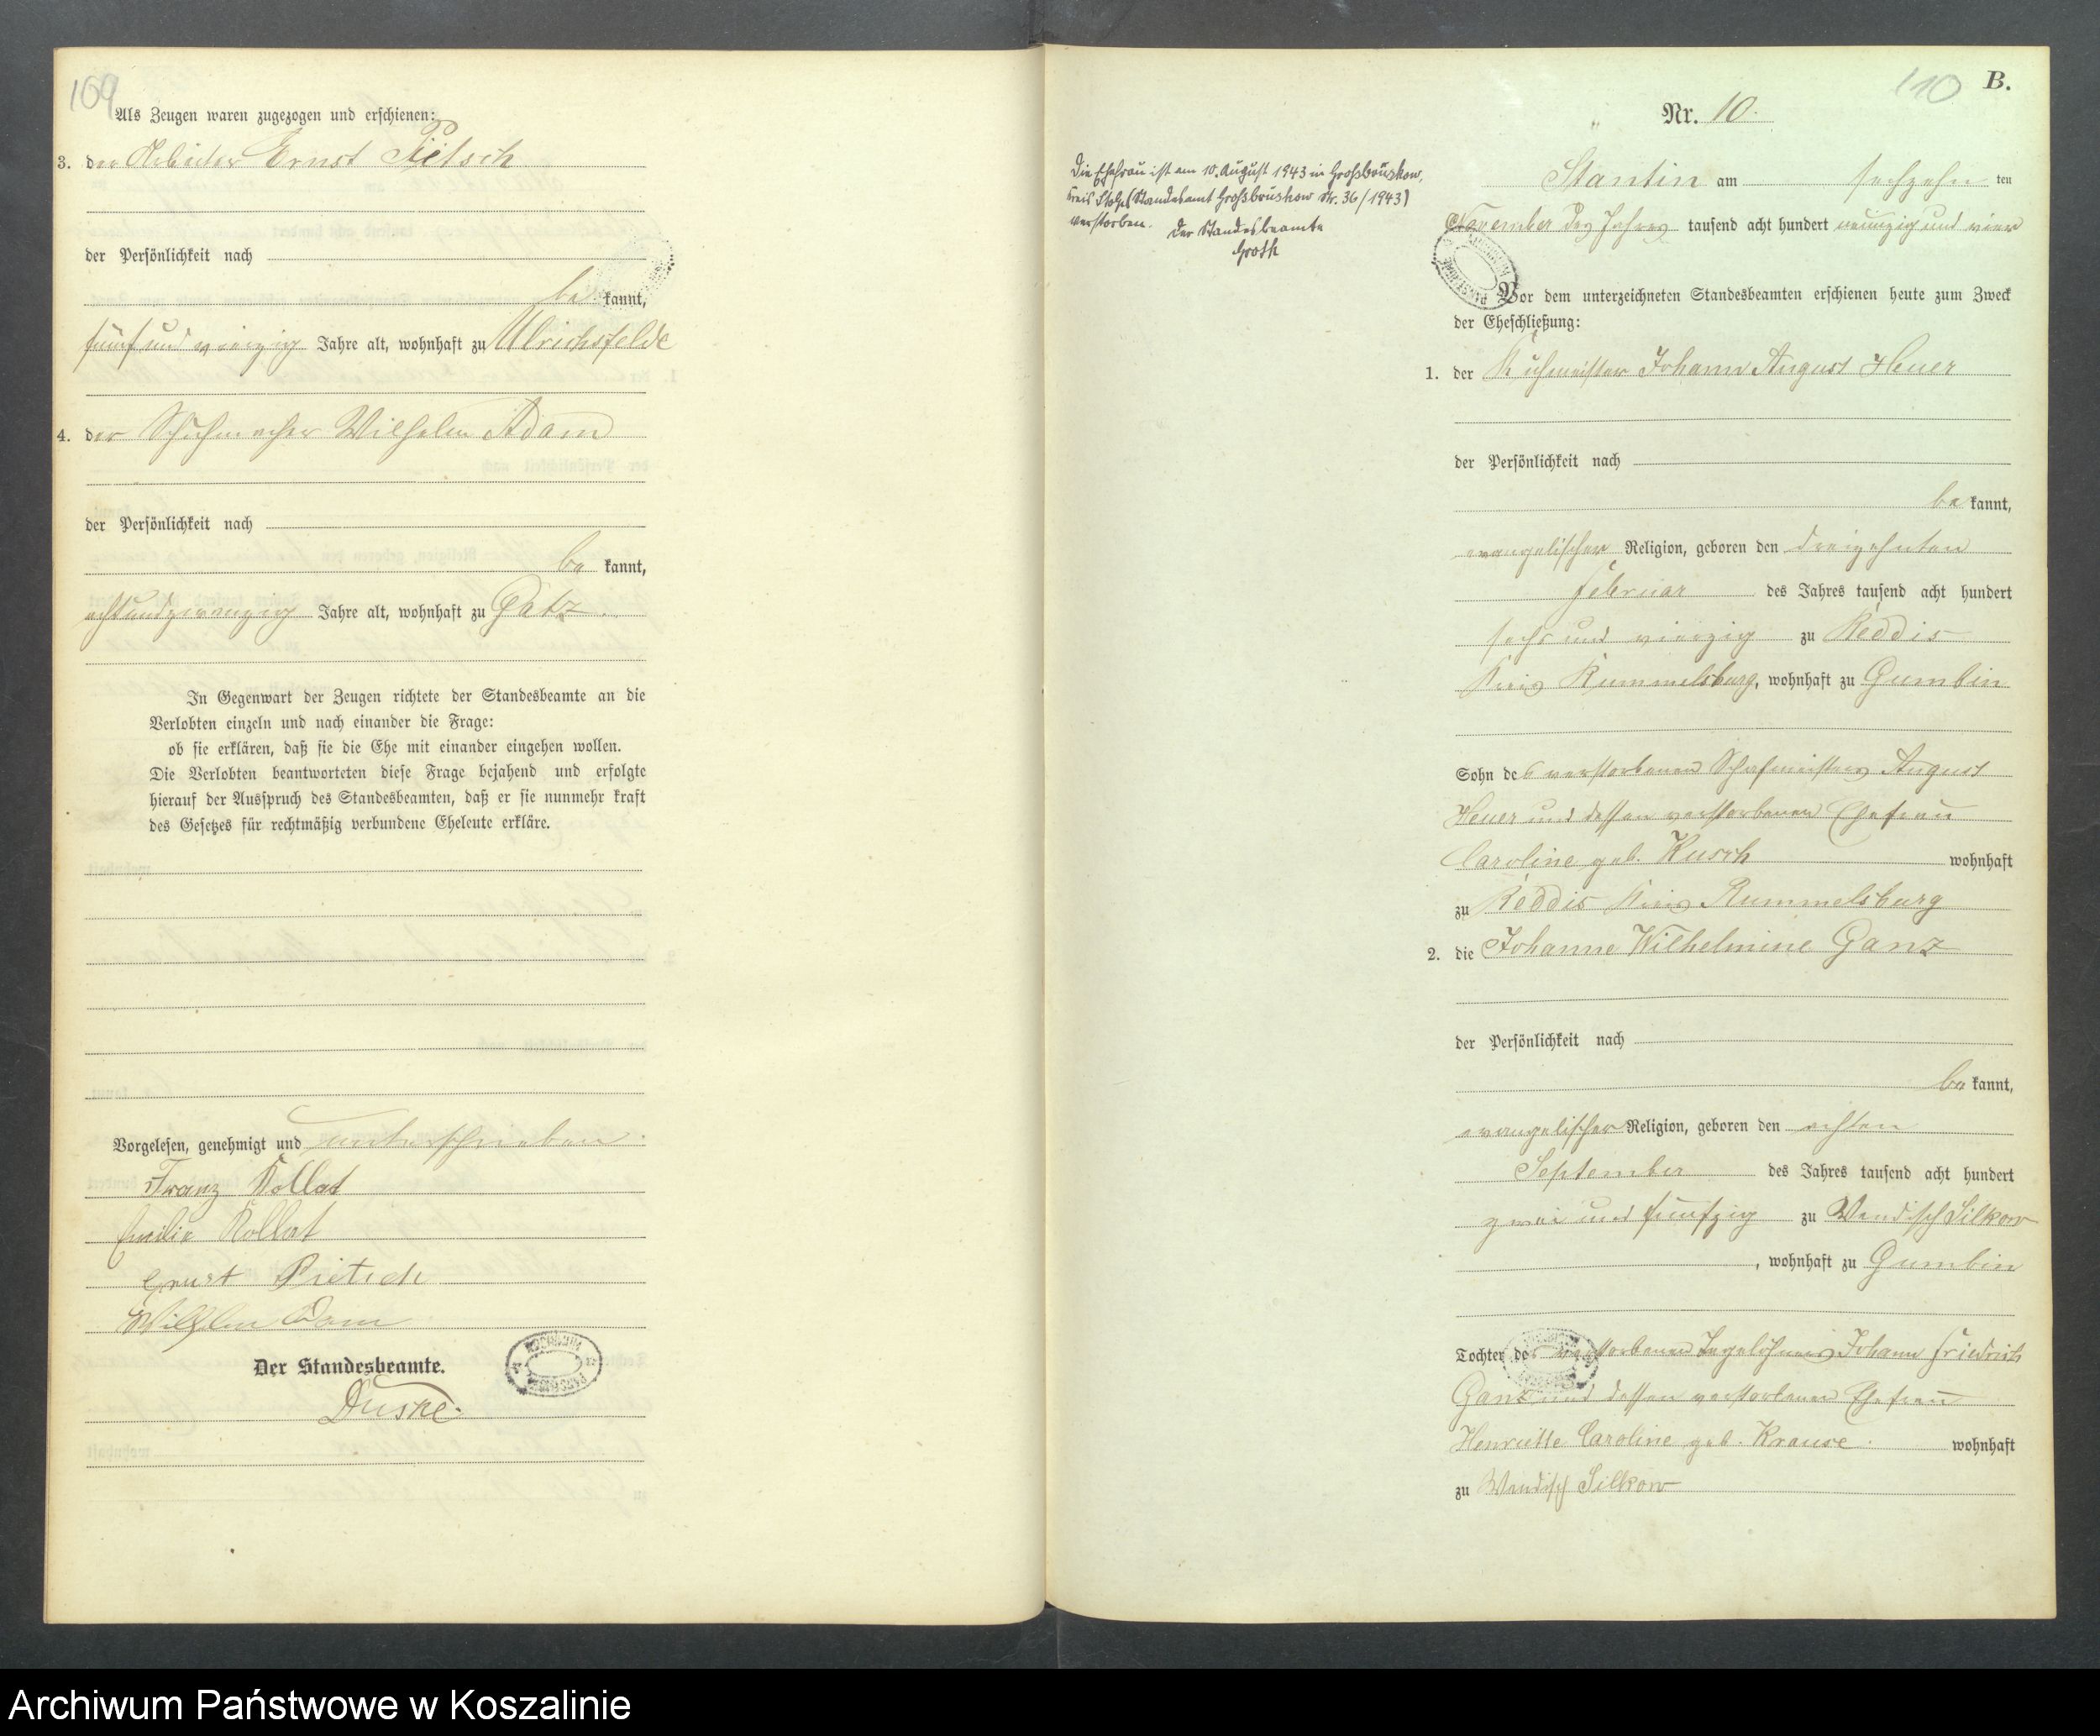 109
Als Zeugen waren zugezogen und erschienen:
3. der Arbeiter Ernst Pietsch
der Persönlichkeit nach
be kannt,
fünf und vierzig Jahre alt, wohnhaft zu Ulrichsfelde
4. der Schuhmacher Wilhelm Adam
der Persönlichkeit nach
be kannt,
achtundzwanzig Jahre alt, wohnhaft zu Gatz.
In Gegenwart der Zeugen richtete der Standesbeamte an die
Verlobten einzeln und nach einander die Frage:
ob sie erklären, daß sie die Ehe mit einander eingehen wollen.
Die Verlobten beantworteten diese Frage bejahend und erfolgte
hierauf der Ausspruch des Standesbeamten, daß er sie nunmehr kraft
des Gesetzes für rechtmäßig verbundene Eheleute erkläre.
Vorgelesen, genehmigt und unterschrieben.
Franz Kollat
Emilie Kollat
Ernst Pietsch
Wilhelm Adam
Der Standesbeamte.
Duske.
110 B.
Nr. 10.
Die Ehefrau ist am 10. August 1943 in Großbrüskow,
Kreis Stolp (Standesamt Großbrüskow Nr. 36/1943)
verstorben. Der Standesbeamte
Groth
Stantin am sechzehn ten
November des Jahres tausend acht hundert neunzig und vier
Vor dem unterzeichneten Standesbeamten erschienen heute zum Zweck
der Eheschließung:
1. der Kuhmeister Johann August Heuer
der Persönlichkeit nach
be kannt,
evangelischer Religion, geboren den dreizehnten
Februar des Jahres tausend acht hundert
sechs und vierzig zu Reddis
Kreis Rummelsburg, wohnhaft zu Gumbin
Sohn des verstorbenen Schafmeisters August
Heuer und dessen verstorbenen Ehefrau
Caroline geb. Kusch wohnhaft
zu Reddis Kreis Rummelsburg
2. die Johanne Wilhelmine Ganz
der Persönlichkeit nach
be kannt,
evangelischer Religion, geboren den achten
September des Jahres tausend acht hundert
zwei und fünfzig zu Wendisch Silkow
, wohnhaft zu Gumbin
Tochter des verstorbenen Tagelöhners Johann Friedrich
Ganz und dessen verstorbenen Ehefrau
Henriette Caroline geb. Krause. wohnhaft
zu Wendisch Silkow
Archiwum Państwowe w Koszalinie